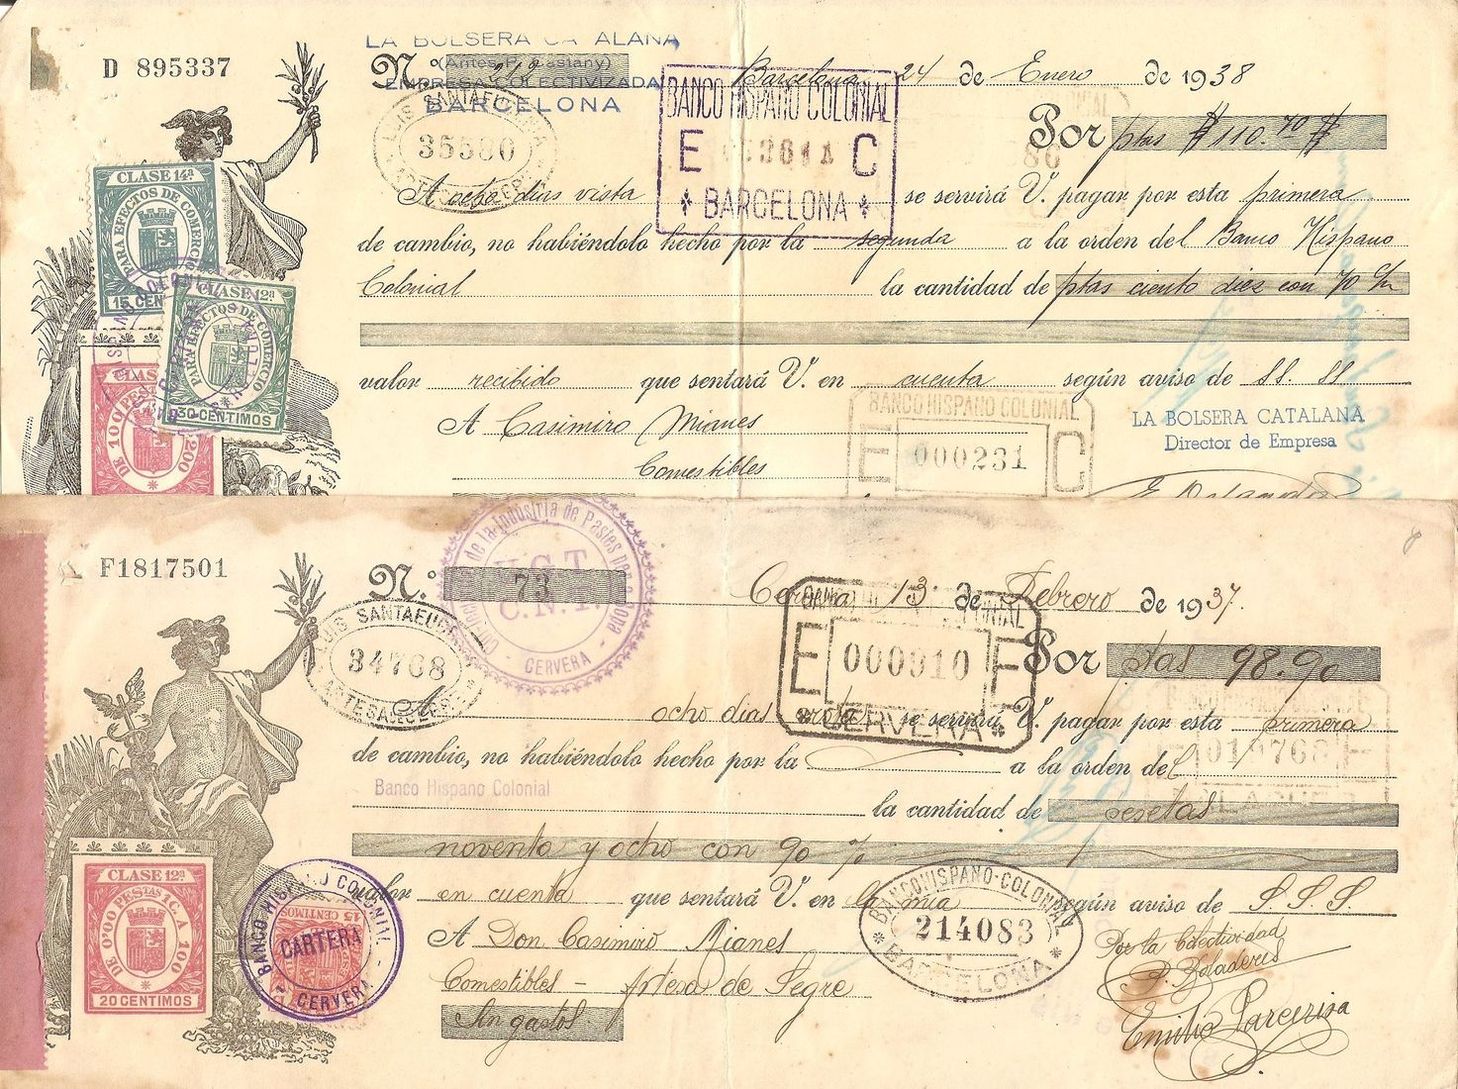 D 895337
LA BOLSERA CATALANA
(Antes P. Castany)
EMPRESA COLECTIVIZADA
BARCELONA
N.º
Barcelona 24 de Enero de 1938
LUIS SANTAEUGENIA
35500
BANCO HISPANO COLONIAL
E C
BARCELONA
Por ptas # 110.70 #
A ocho dias vista se servirá V. pagar por esta primera
de cambio, no habiéndolo hecho por la segunda a la orden del Banco Hispano
Colonial la cantidad de ptas ciento diez con 70 cts
valor recibido que sentará V. en cuenta según aviso de SS. SS
A Casimiro Mianes
Comestibles
BANCO HISPANO COLONIAL
E 000231 C
LA BOLSERA CATALANA
Director de Empresa
CLASE 14ª
PARA EFECTOS DE COMERCIO
15 CEN
CLASE 12ª
PARA EFECTOS DE COMERCIO
30 CENTIMOS
CLAS
F1817501
N.º 73
U.G.T.
C.N.T.
de la Industria de Pastes per a Sopa
CERVERA
Cervera 13 de Febrero de 1937.
LUIS SANTAEUGENIA
34768
ARTESA DE SEGRE
E 000910 E
CERVERA
Por ptas 98.90
ocho dias vista se servirá V. pagar por esta primera
de cambio, no habiéndolo hecho por la a la orden del
Banco Hispano Colonial
la cantidad de pesetas
noventa y ocho con 90 %
valor en cuenta que sentará V. en la mia según aviso de S.S.S.
A Don Casimiro Mianes
Comestibles - Artesa de Segre
Sin gastos
BANCO HISPANO-COLONIAL
214083
BARCELONA
Por la Colectividad
Emilio Parcerisa
CLASE 12ª
DE 0'00 PESTAS 1 C. A 100
20 CENTIMOS
BANCO HISPANO COLONIAL
CARTERA
CERVERA
15 CENTIMOS